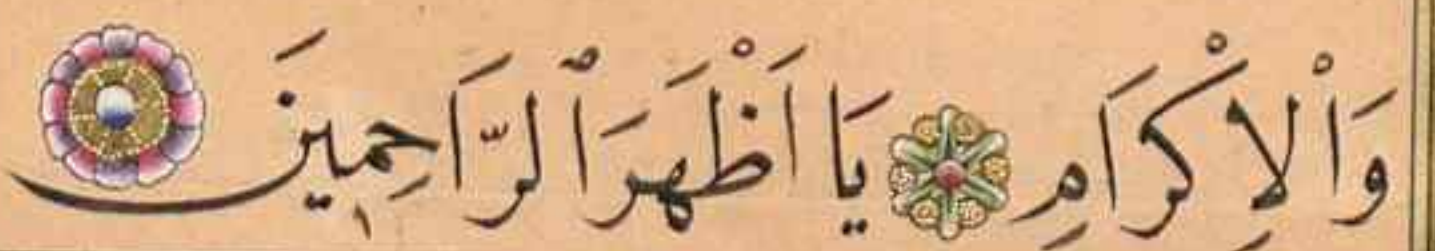 وَاْلاِكْرَامِ يَا اَظْهَرَاْلرَّاحِمِينَ